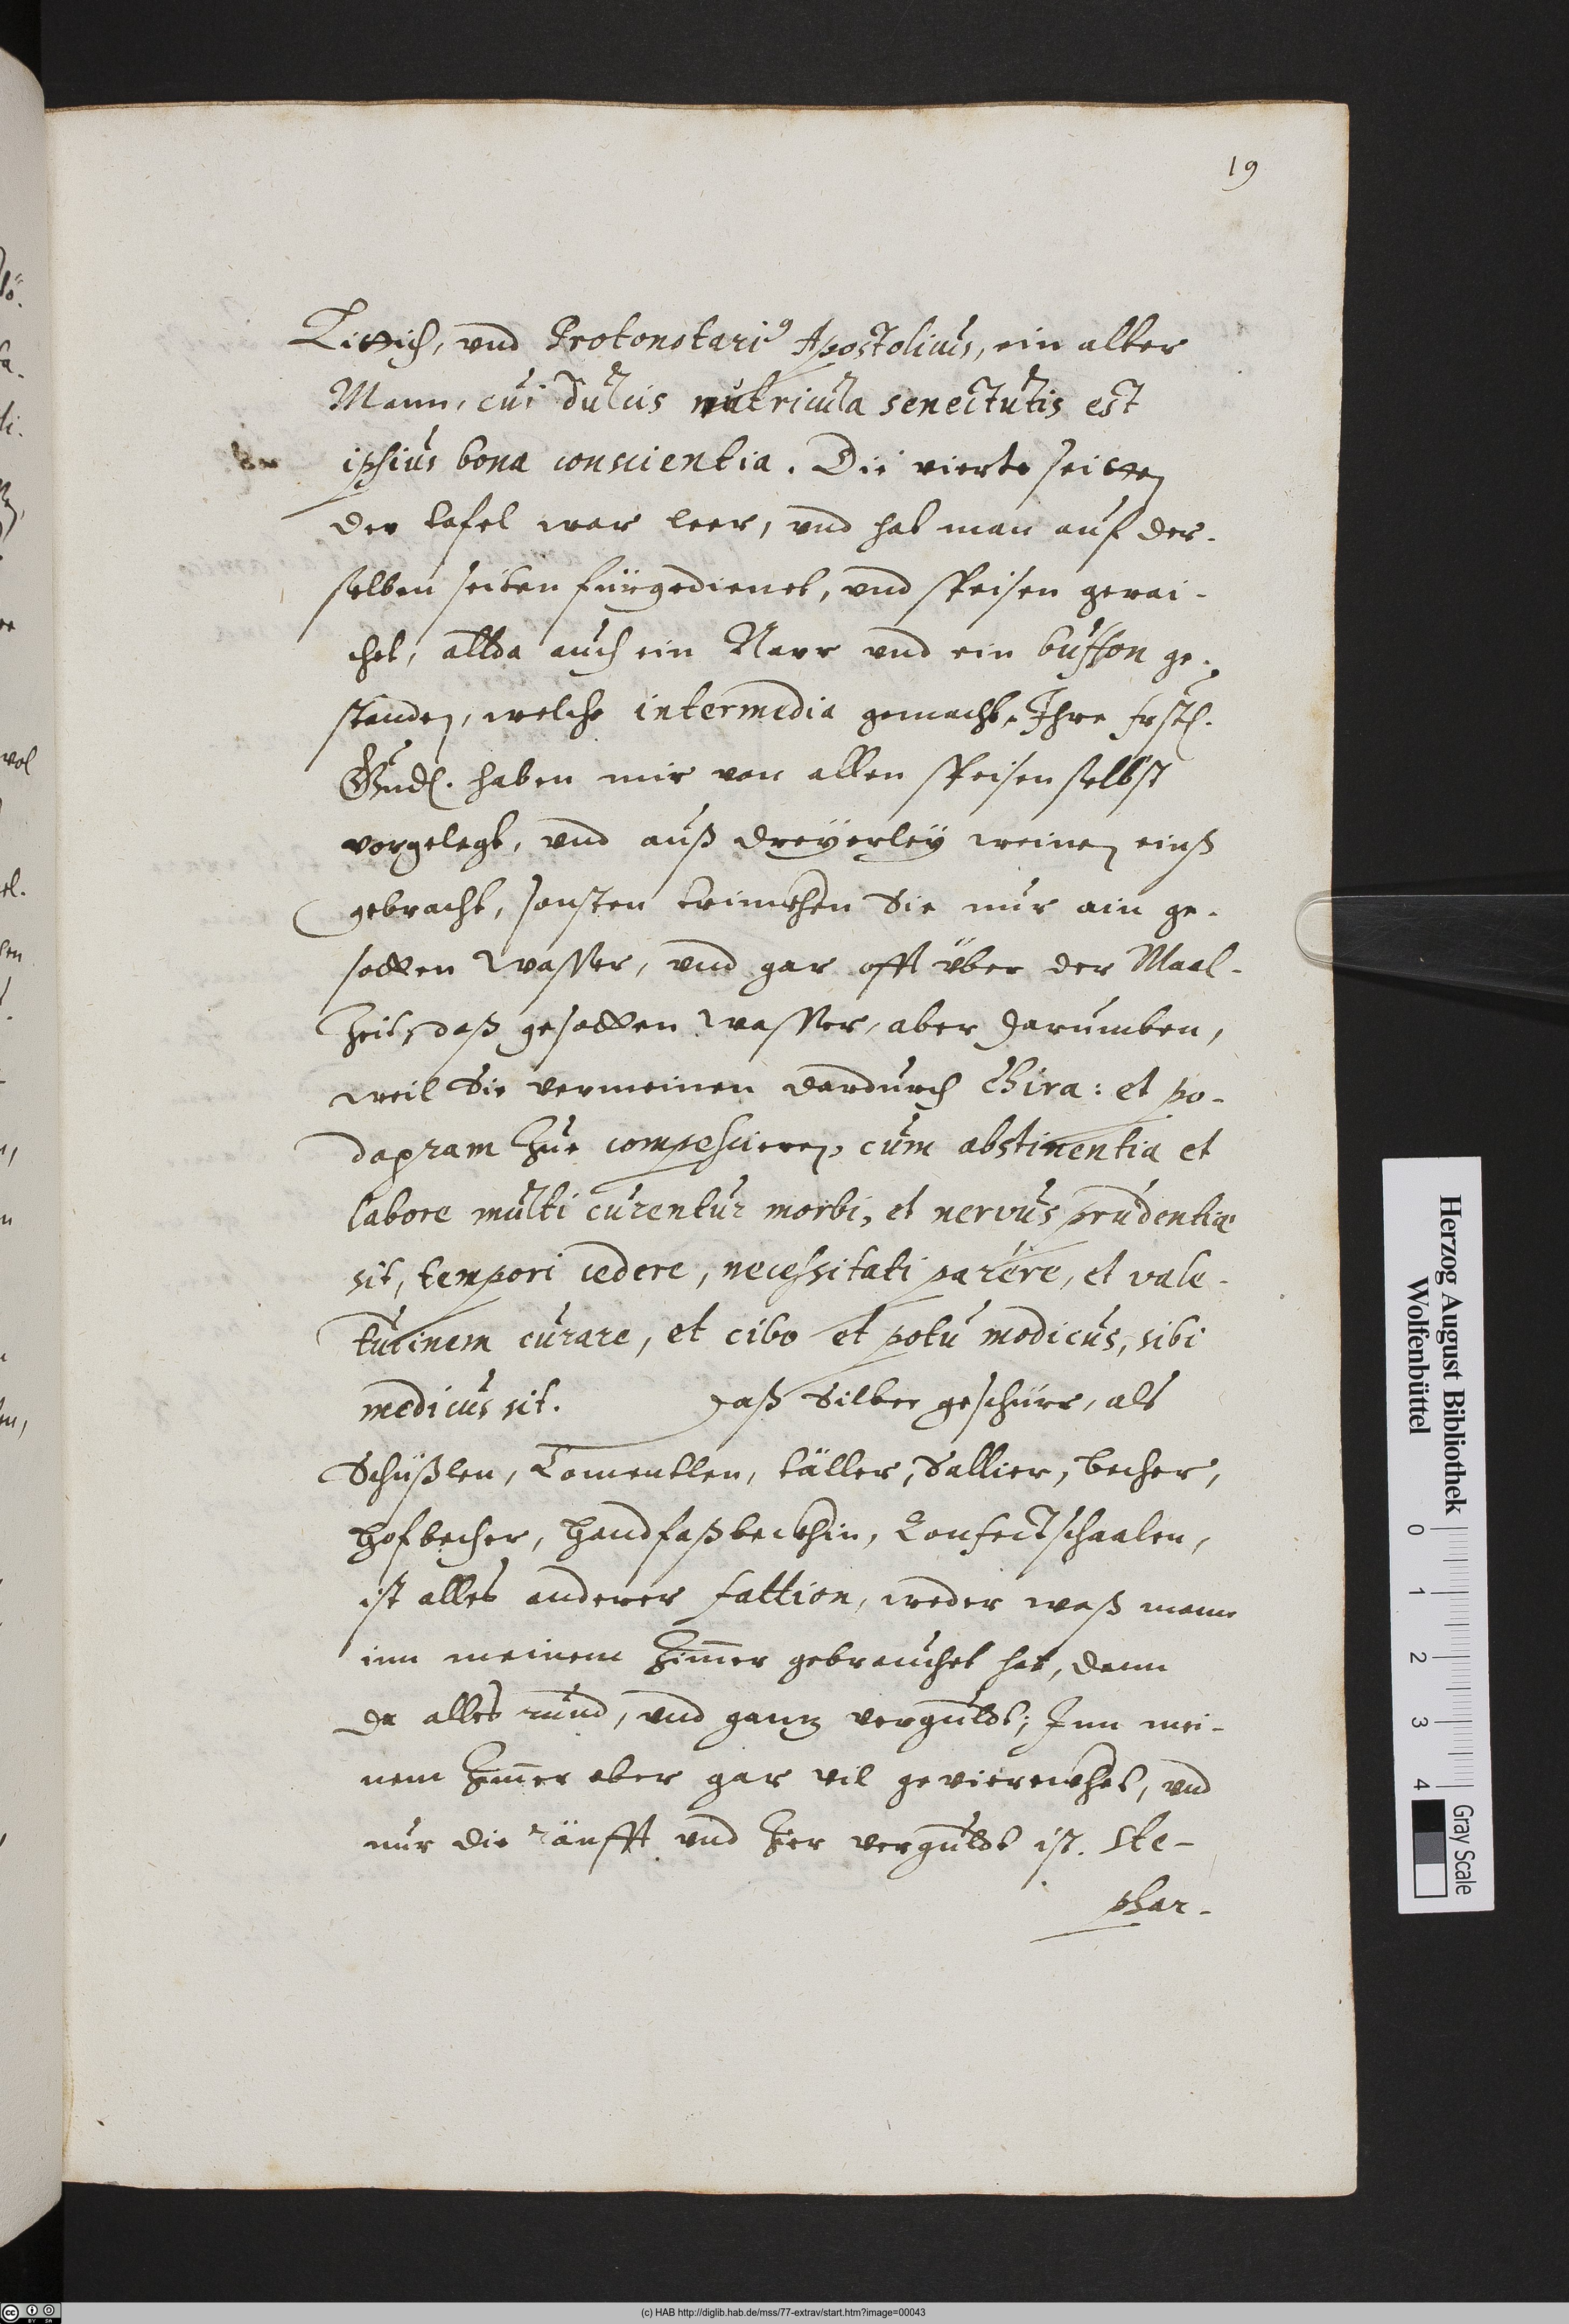 19
Littich, vnd Protonotari9 Apostolicus, ein alter
Mann, cui dulcis nutricula senectutis est
ipsius bona conscientia. Die vierte seitten
der tafel war leer, vnd hat man auf der-
selben seiten fürgedienet, vnd speisen gerai-
chet, allda auch ein Narr vnd ein buffon ge-
standen, welche intermedia gemacht, Ihre frstl.
Gnd. haben mir von allen speisen selbst
vorgelegt, vnd auß dreyerley weinen einß
gebracht, sonsten trinckhen Sie nur ain ge-
sotten wasser, vnd gar offt über der Maal-
zeit, daß gesotten wasser, aber darumben,
weil Sie vermeinen dardurch Chira: et po-
dagram zue compescieren, cum abstinentia et
labore multi curentur morbi, et nervus prudentiæ
sit, tempori cedere, necessitati parere, et vale-
tudinem curare, et cibo et potu modicus, sibi
medicus sit. Daß Silber geschürr, als
Schüßlen, Comentlen, täller, Sallier, becher,
hofbecher, handfaßbeckhin, Confectschaalen,
ist alles anderer fattion, weder waß mann
inn meinem Zimmer gebrauchet hat, dann
da alles rund, vnd gantz verguldt; Inn mei-
nem Zimmer aber gar vil geviereckhet, vnd
nur die ränfft vnd Zier verguldt ist. Ste-
phar-
Herzog August Bibliothek
Wolfenbüttel
0 1 2 3 4
Gray Scale
(c) HAB http://diglib.hab.de/mss/77-extrav/start.htm?image=00043